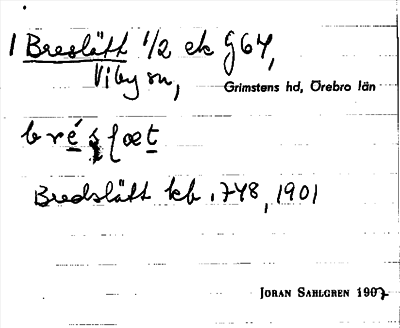 1 Breslätt 1/2 ek G64,
Viby sn,
Grimstens hd, Örebro län
Bredslätt kb. 748, 1901
JÖRAN SAHLGREN 1907